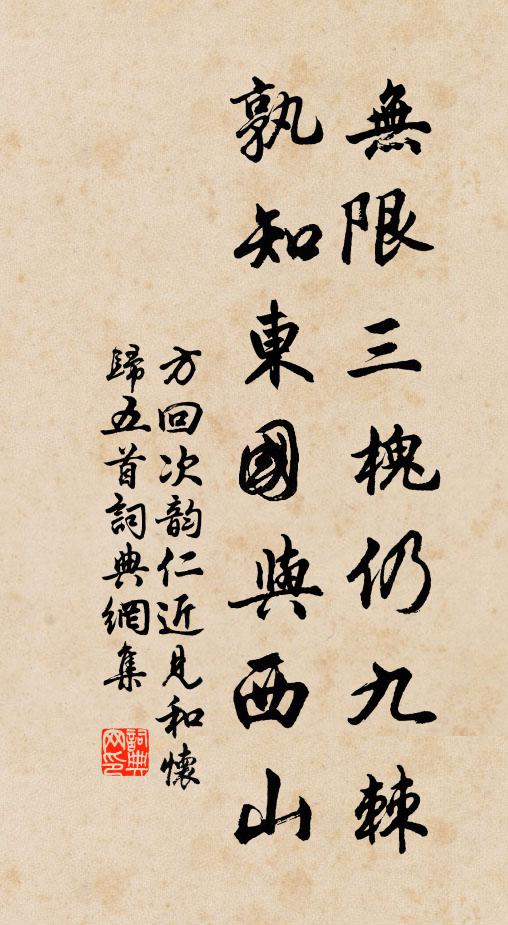 無限三槐仍九棘
孰知東國與西山
方回次韵仁近見和懷
歸五首詞典網集
詞典
网印